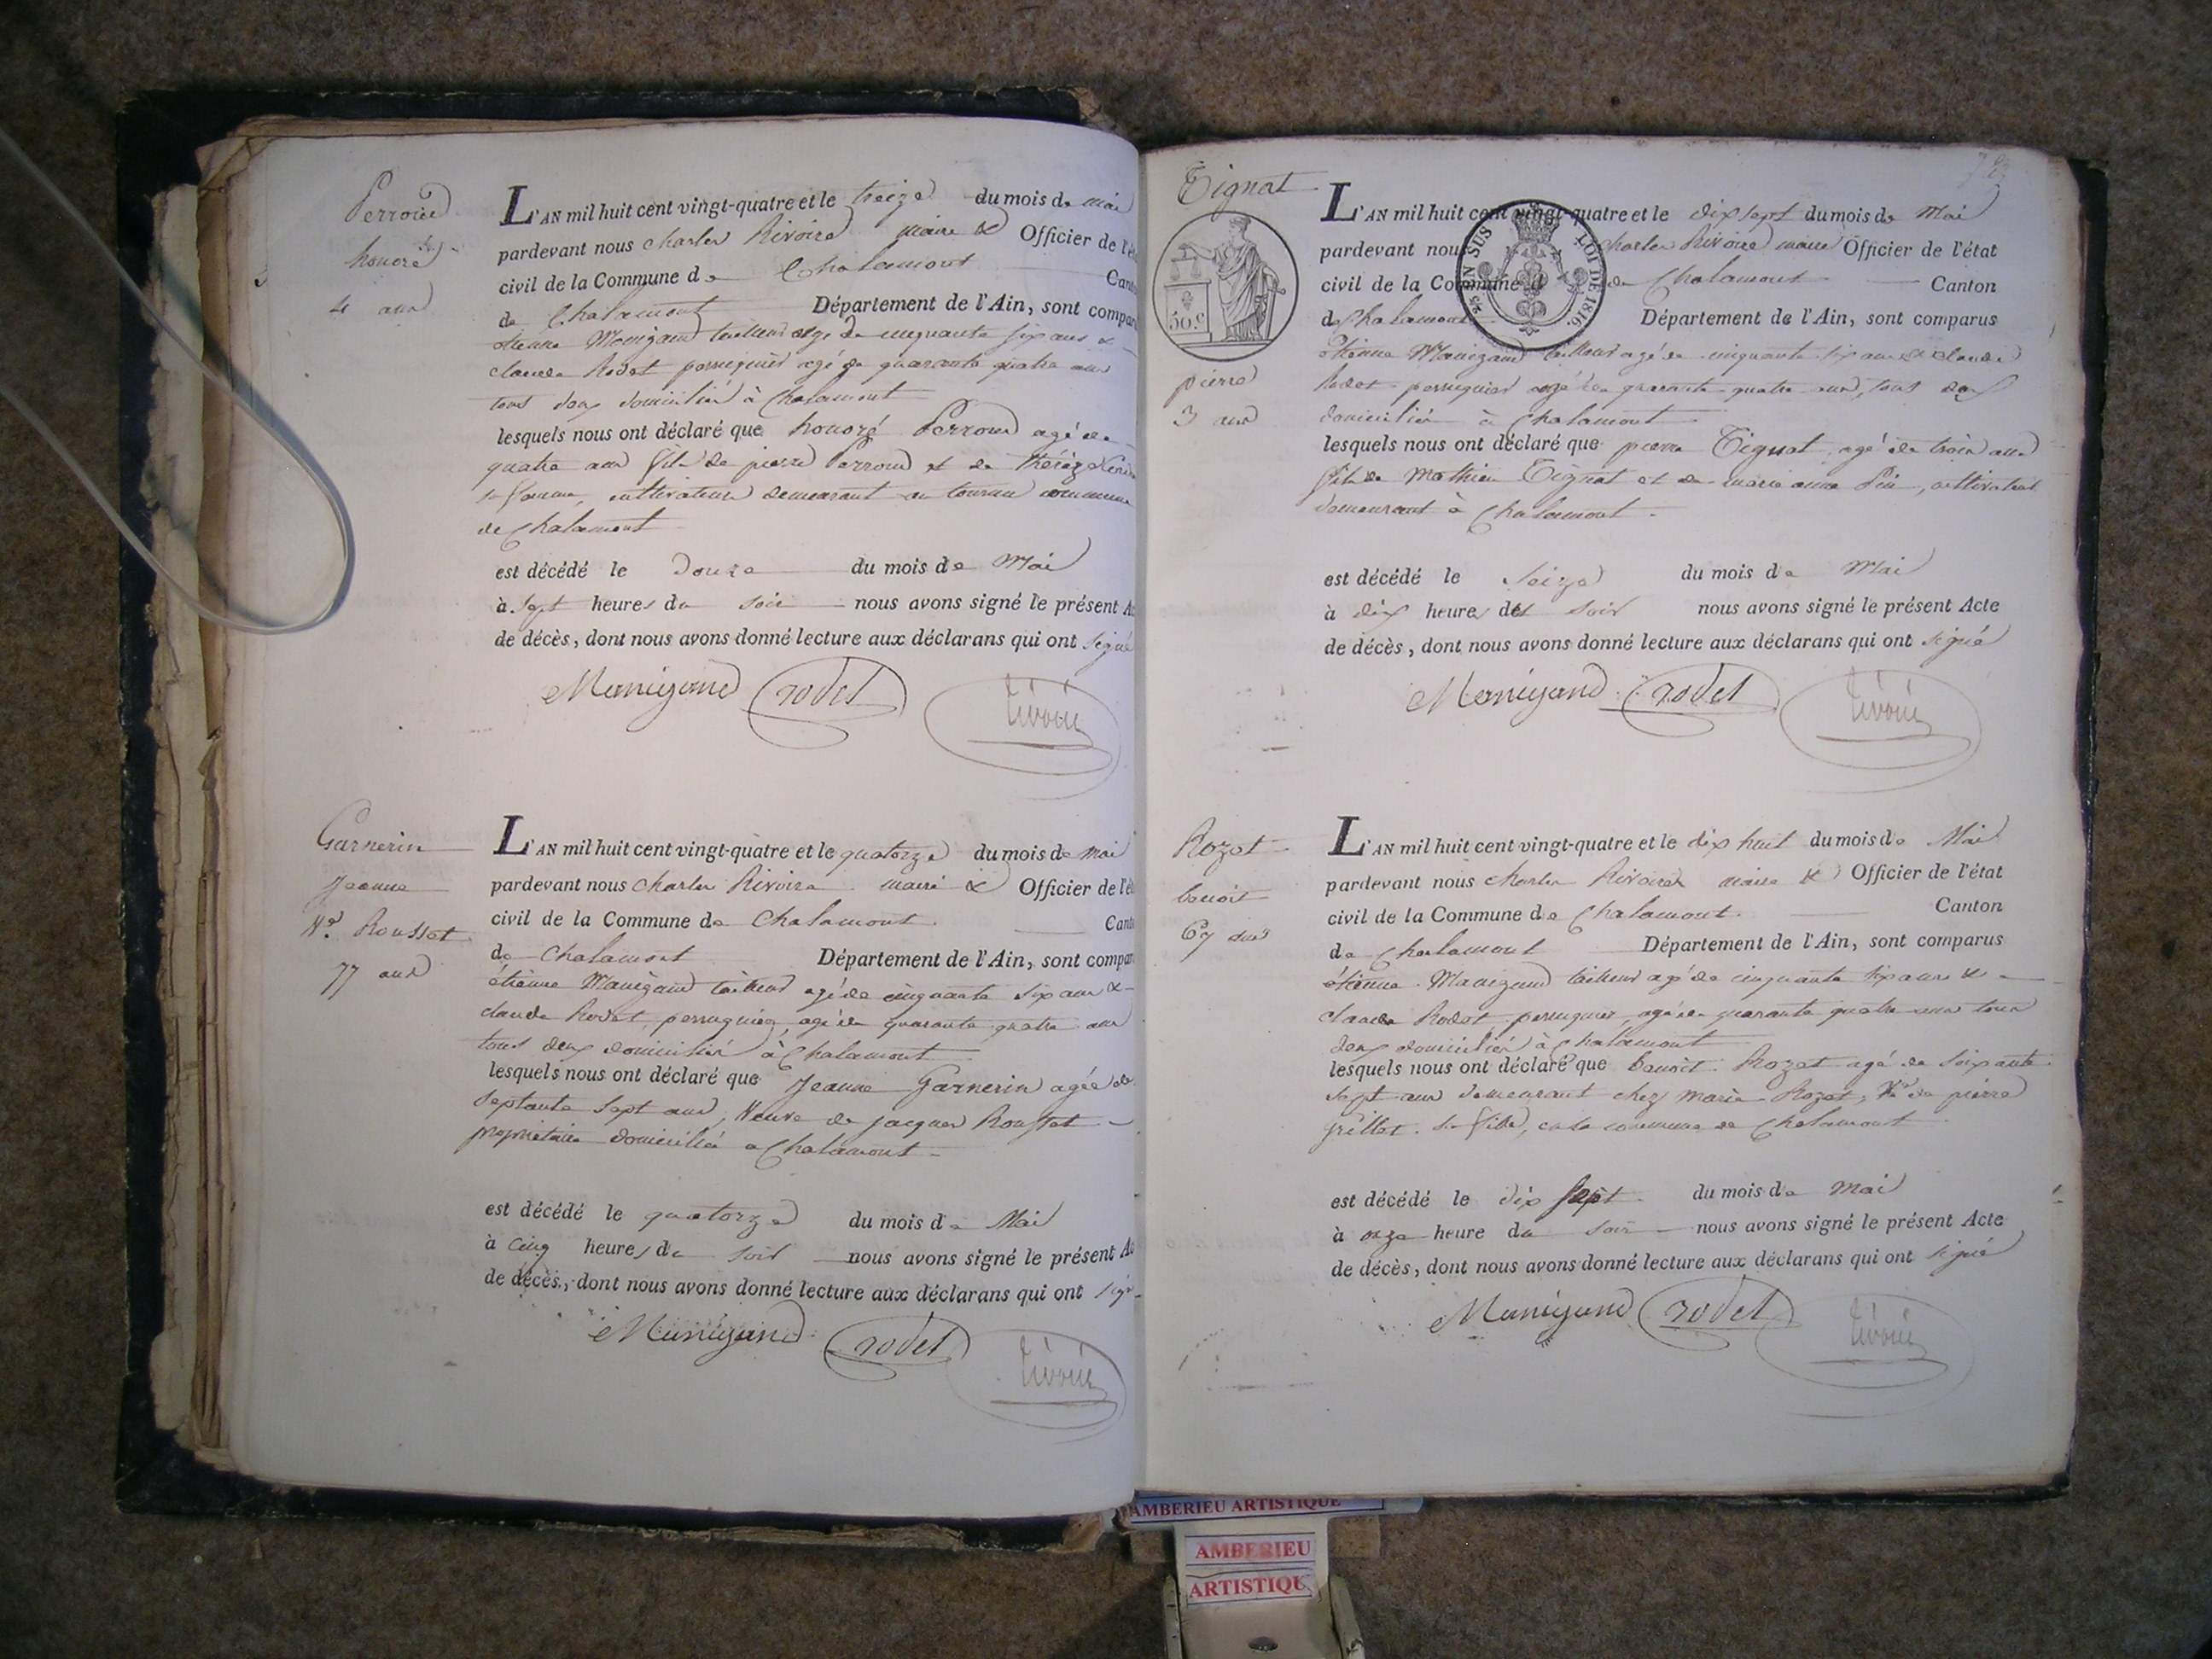 Perroud
honoré
4 ans
L'AN mil huit cent vingt-quatre et le treize du mois de mai
pardevant nous charles Rivoire maire & Officier de l'ét
civil de la Commune de Chalamont Cant
de Chalamont Département de l'Ain, sont compar
étienne Manigand tailleur agé de cinquante six ans &
claude Rodet perruquier agé de quarante quatre ans
tous deux domiciliés à Chalamont
lesquels nous ont déclaré que honoré Perroud agé de
quatre ans fils de pierre Perroud et de Thérèze
sa femme, cultivateurs demeurant au commune
de Chalamont
est décédé le Douze du mois de Mai
à sept heures du soir nous avons signé le présent A
de décès, dont nous avons donné lecture aux déclarans qui ont signé
Manigand rodet rivoire
Garnerin
Jeanne
Ve. Rousset
77 ans
L'AN mil huit cent vingt-quatre et le quatorze du mois de mai
pardevant nous charles Rivoire maire & Officier de l'ét
civil de la Commune de Chalamont Cant
de Chalamont Département de l'Ain, sont compar
étienne Manigand tailleur agé de cinquante six ans &
claude Rodet, perruquier, agé de quarante quatre ans
tous deux domiciliés à Chalamont
lesquels nous ont déclaré que Jeanne Garnerin agée de
septante sept ans, Veuve de jacques Rousset
propriétaire domiciliée a Chalamont
est décédé le quatorze du mois de Mai
à cinq heures du soir nous avons signé le présent Ac
de décès, dont nous avons donné lecture aux déclarans qui ont sign
Manigand rodet rivoire
Tignat
50.c
pierre
3 ans
L'AN mil huit cent vingt-quatre et le dix sept du mois de Mai
pardevant nous charles Rivoire maire Officier de l'état
civil de la Commune de Chalamont Canton
de Chalamont Département de l'Ain, sont comparus
EN SUS LOI DE 1816.
étienne Manigand tailleur agé de cinquante six ans & claude
Rodet perruquier agé de quarante quatre ans, tous deux
domiciliés à Chalamont
lesquels nous ont déclaré que pierre Tignat agé de trois ans
fils de Mathieu Tignat et de marie anne, cultivateurs
demeurant à Chalamont
est décédé le Seize du mois de Mai
à dix heures du soir nous avons signé le présent Acte
de décès, dont nous avons donné lecture aux déclarans qui ont signé
Manigand rodet rivoire
Rozet
benoit
67 ans
L'AN mil huit cent vingt-quatre et le dix huit du mois de Mai
pardevant nous charles Rivoire maire & Officier de l'état
civil de la Commune de Chalamont Canton
de Chalamont Département de l'Ain, sont comparus
étienne Manigand tailleur agé de cinquante six ans &
claude Rodet, perruquier, agé de quarante quatre ans tous
deux domiciliés à Chalamont
lesquels nous ont déclaré que benoit Rozet agé de soixante
sept ans demeurant chez marie Rozet, Ve de pierre
grillet sa fille, en la commune de Chalamont
est décédé le dix sept du mois de Mai
à onze heure du soir nous avons signé le présent Acte
de décès, dont nous avons donné lecture aux déclarans qui ont signé
Manigand rodet rivoire
AMBERIEU ARTISTIQUE
AMBERIEU
ARTISTIQU